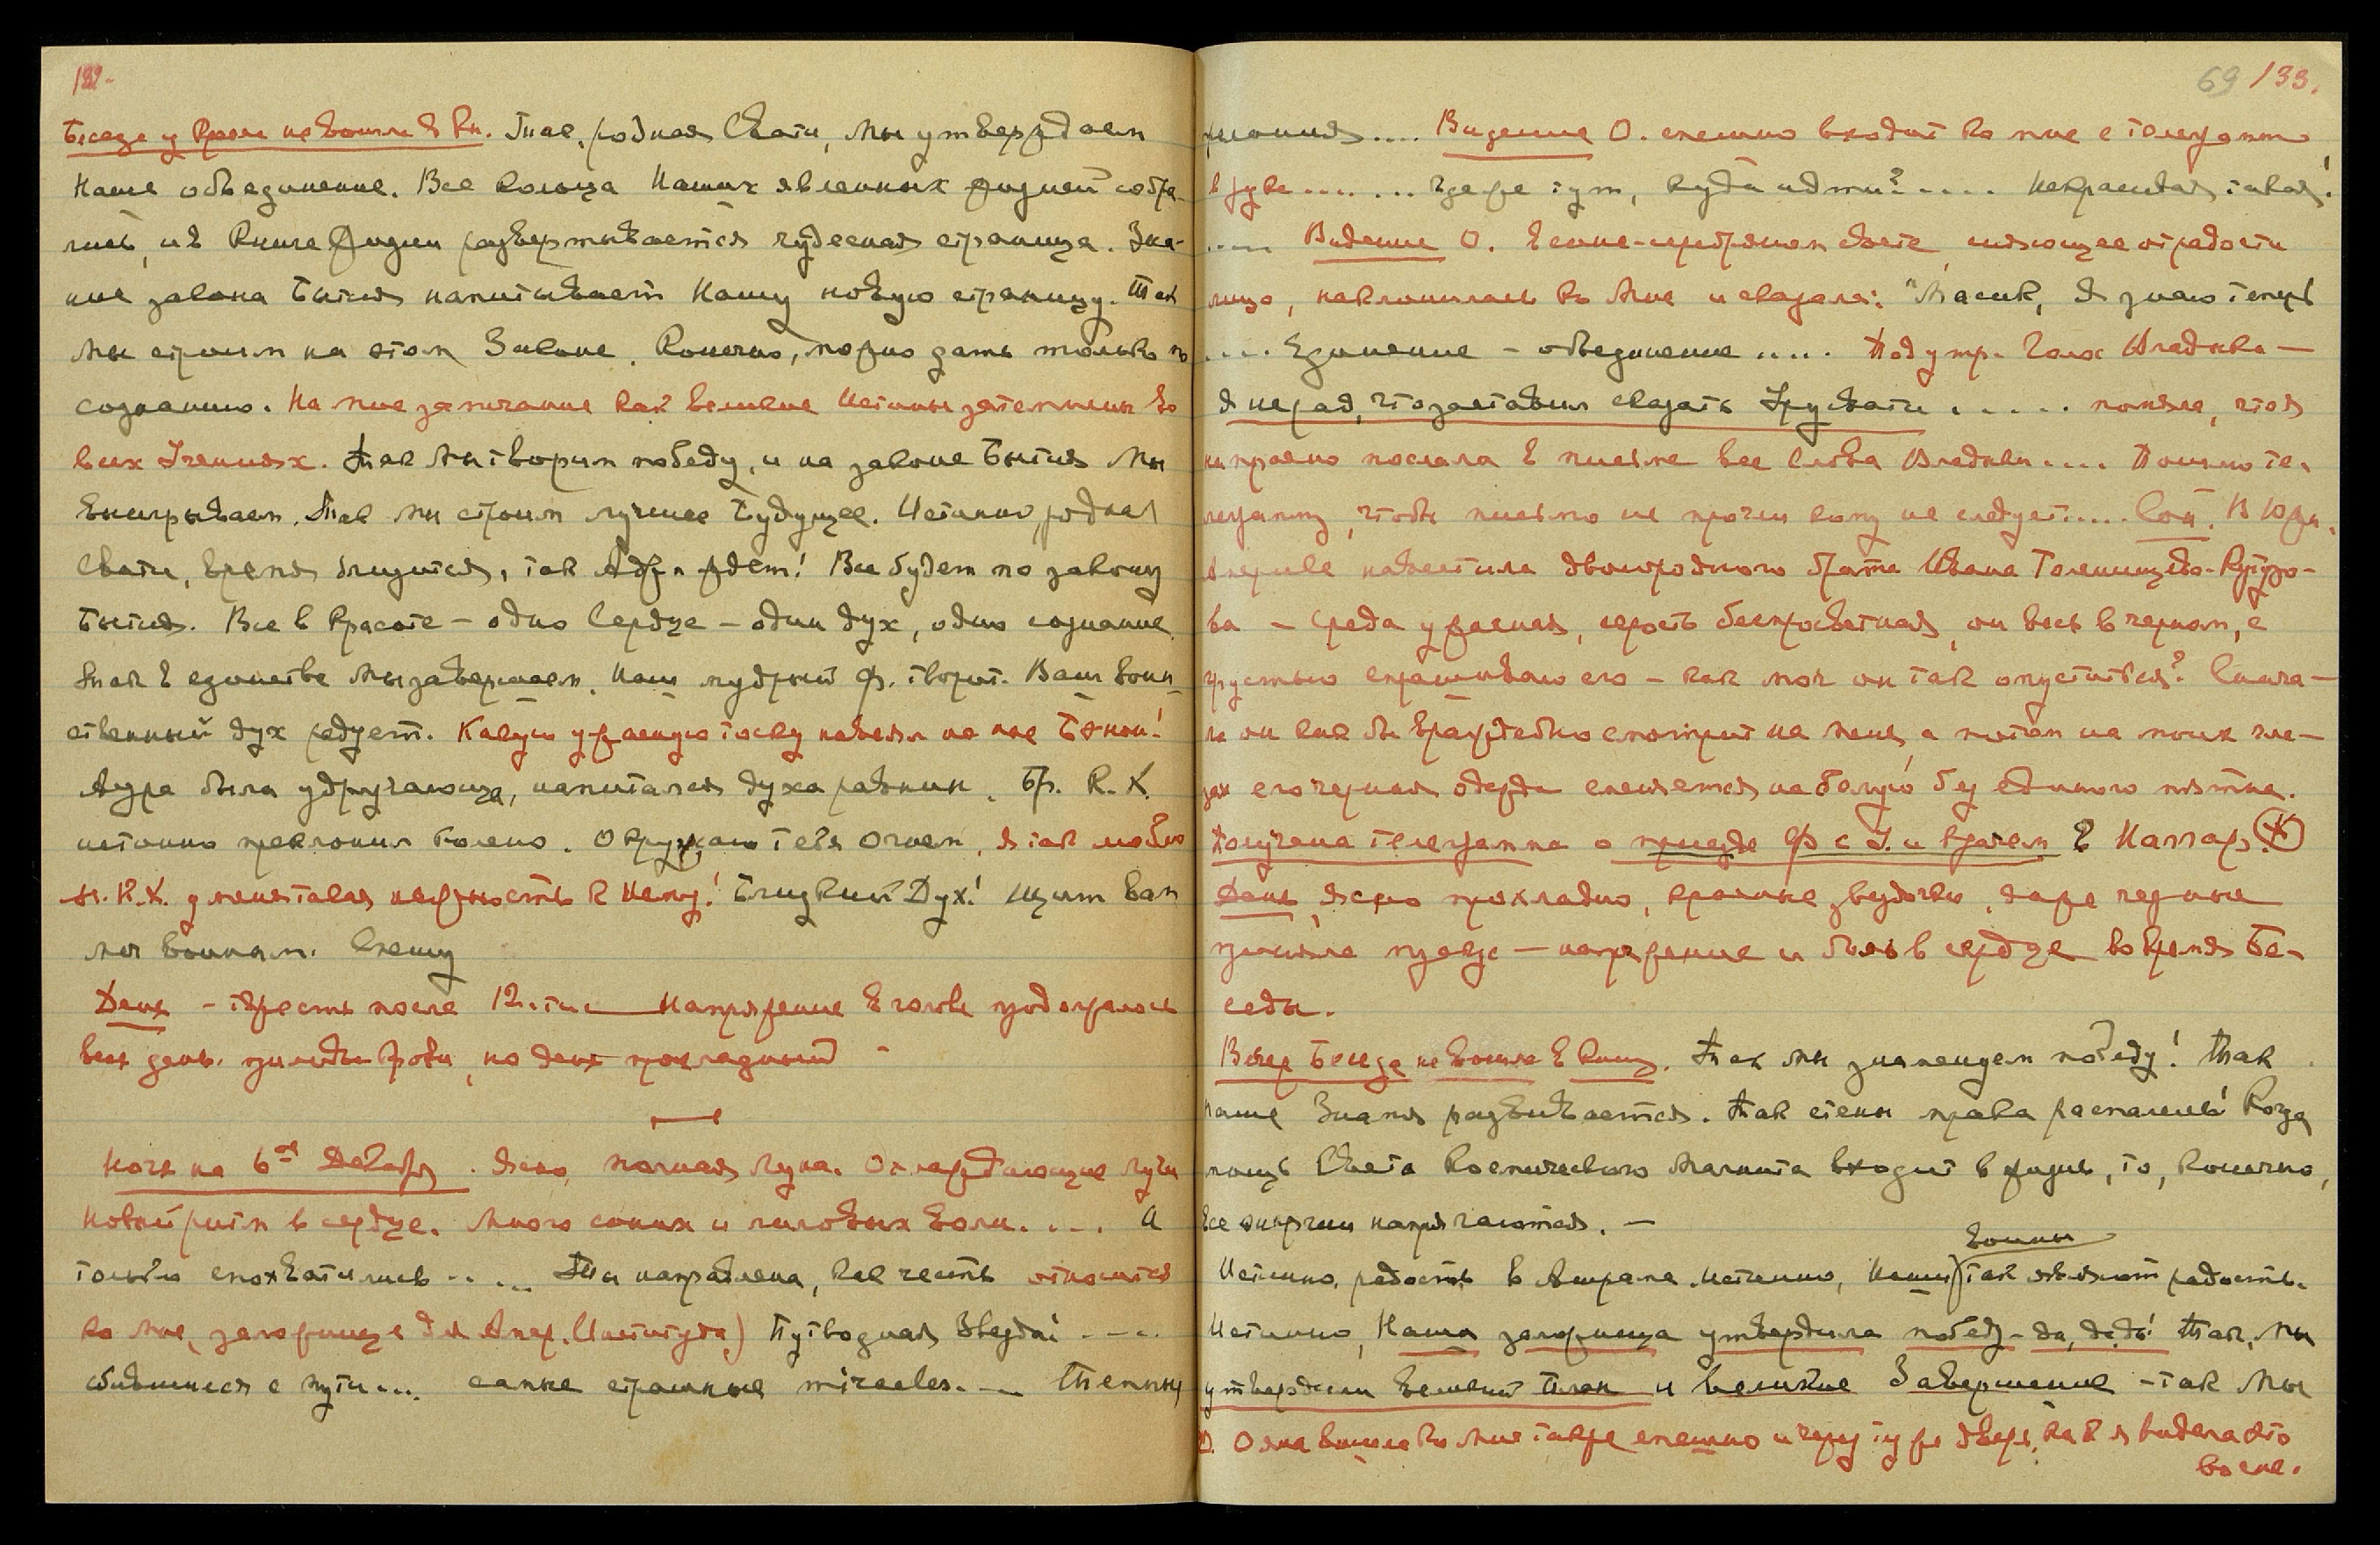 132.
Беседа у Рояля не вошла в Кн. Так, родная Свати, Мы утверждаем
Наше объединение. Все кольца Наших явленных жизней собра-
лись, и в Книге Жизни развертывается чудесная страница. Зна-
ние закона Бытия напитывает Нашу новую страницу. Так
Мы строим на этом Законе. Конечно, можно дать только по
сознанию. На мое замечание как великие Истины затемнены во
всех Учениях. Так Мы творим победу, и на законе Бытия Мы
выигрываем. Так мы строим лучшее Будущее. Истинно, родная
Свати, время близится, так Адж. ждет! Все будет по закону
Бытия. Все в Красоте – одно Сердце – один дух, одно сознание.
Так в единстве Мы завершаем. Наш мудрый Ф. творит. Ваш воин-
ственный дух радует. Какую ужасную тоску навеял на мне Бэнон!
Аура была удручающа, напитался духа равнин. Бр. К. Х.
истинно преклонил колено. Окружаю тебя Огнем, Я так люблю
М. К.Х. у меня такая нежность к Нему! Близкий Дух! Щит вам
мог воинам. Спешу
День – тяжесть после 12-ти Напряжение в голове продолжалось
весь день. приливы крови, но день прохладный –
Ночь на 6ое Декабря. Ясно, полная луна. Охлаждающие лучи
Новый ритм в сердце. Много синих и лиловых волн. ... И
только спохватились .... Ты направлена, как честь относится
ко мне, заложнице для Амер. Института) Путводная Звезда! ....
сбившиеся с пути... самые странные miracles. ... Темпы
69 133.
.... Видение О. спешно входит ко мне с телеграммой
в руке ....... где же тут, куда идти? .... Некрасивая такая!
.... Видение О. в сине-серебряном свете, сияющее от радости
лицо, наклонилась ко Мне и сказала: "Масик, Я знаю теперь
.... Единение – объединение .... Под утр. Голос Владыки –
Я не рад, что заставил сказать Урусвати ..... поняла, что я
напрасно послала в письме все слова Владыки .... Помимо те-
леграмму, чтобы письмо не прочли кому не следует..... Сон. В Юж.
Америке навестила двоюродного брата Ивана Голенищева-Кутузо-
ва – среда ужасная, серость беспросветная, он весь в черном, с
грустью спрашиваю его – как мог он так опуститься? Снача-
ла он как бы враждебно смотрит на меня, а потом на моих гла-
зах его черная одежда сменяется на белую без единого пятна.
Получена телеграмма о приезде Ф с У. и врачем в Наггар.
День, Ясно прохладно, красные звездочки, даже черные
приняла мускус – напряжение и боль в сердце во время Бе-
седы.
Вечер Беседа не вошла в Книгу. Так мы знаменуем победу! Так
наше Знамя развивается. Так стены мрака распались! Когда
мощь Света Космического Магнита входит в жизнь, то, конечно,
все энергии напрягаются. –
воины
Истинно, радость в Ашраме. Истинно, Наши так являют радость.
Истинно, Наша заложница утвердила победу – да, да, да! Так, Мы
утвердили великий План и великое Завершение – так Мы
О. Она вошла ко мне также спешно и через ту же дверь, как я видела это
во сне.